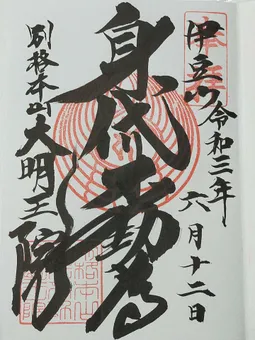 奉拝
伊豆山 令和三年 六月十二日
身代不動尊
別格本山 大明王院